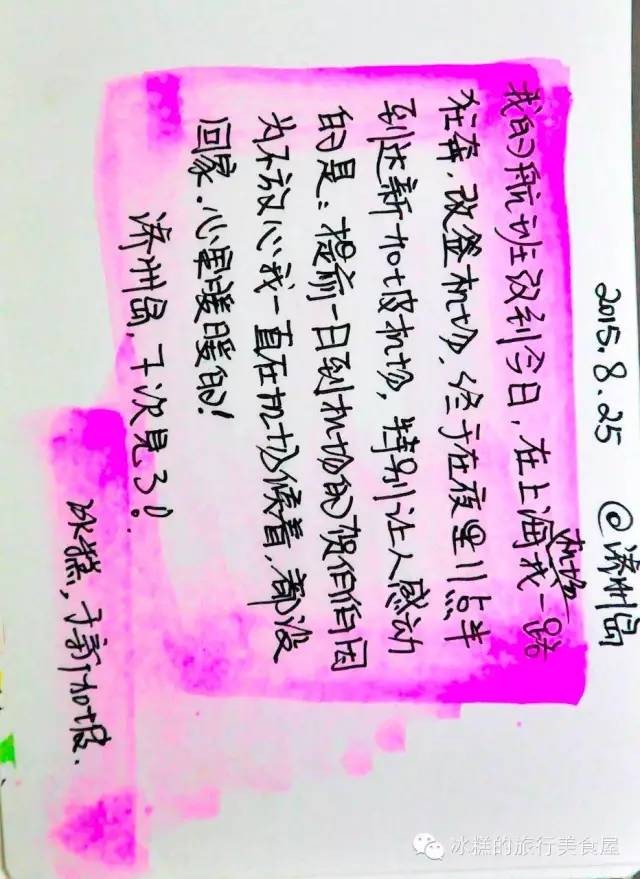 2015.8.25 @济州岛
我的航班改到今日，在上海机场我一路
狂奔，改签机场，终于在夜里11点半
到达新加坡机场，特别让人感动
的是：提前一日到机场的贺伯伯因
为不放心我一直在机场候着，都没
回家.心里暖暖的！
济州岛，下次見了！
冰糕，于新加坡.
冰糕的旅行美食屋